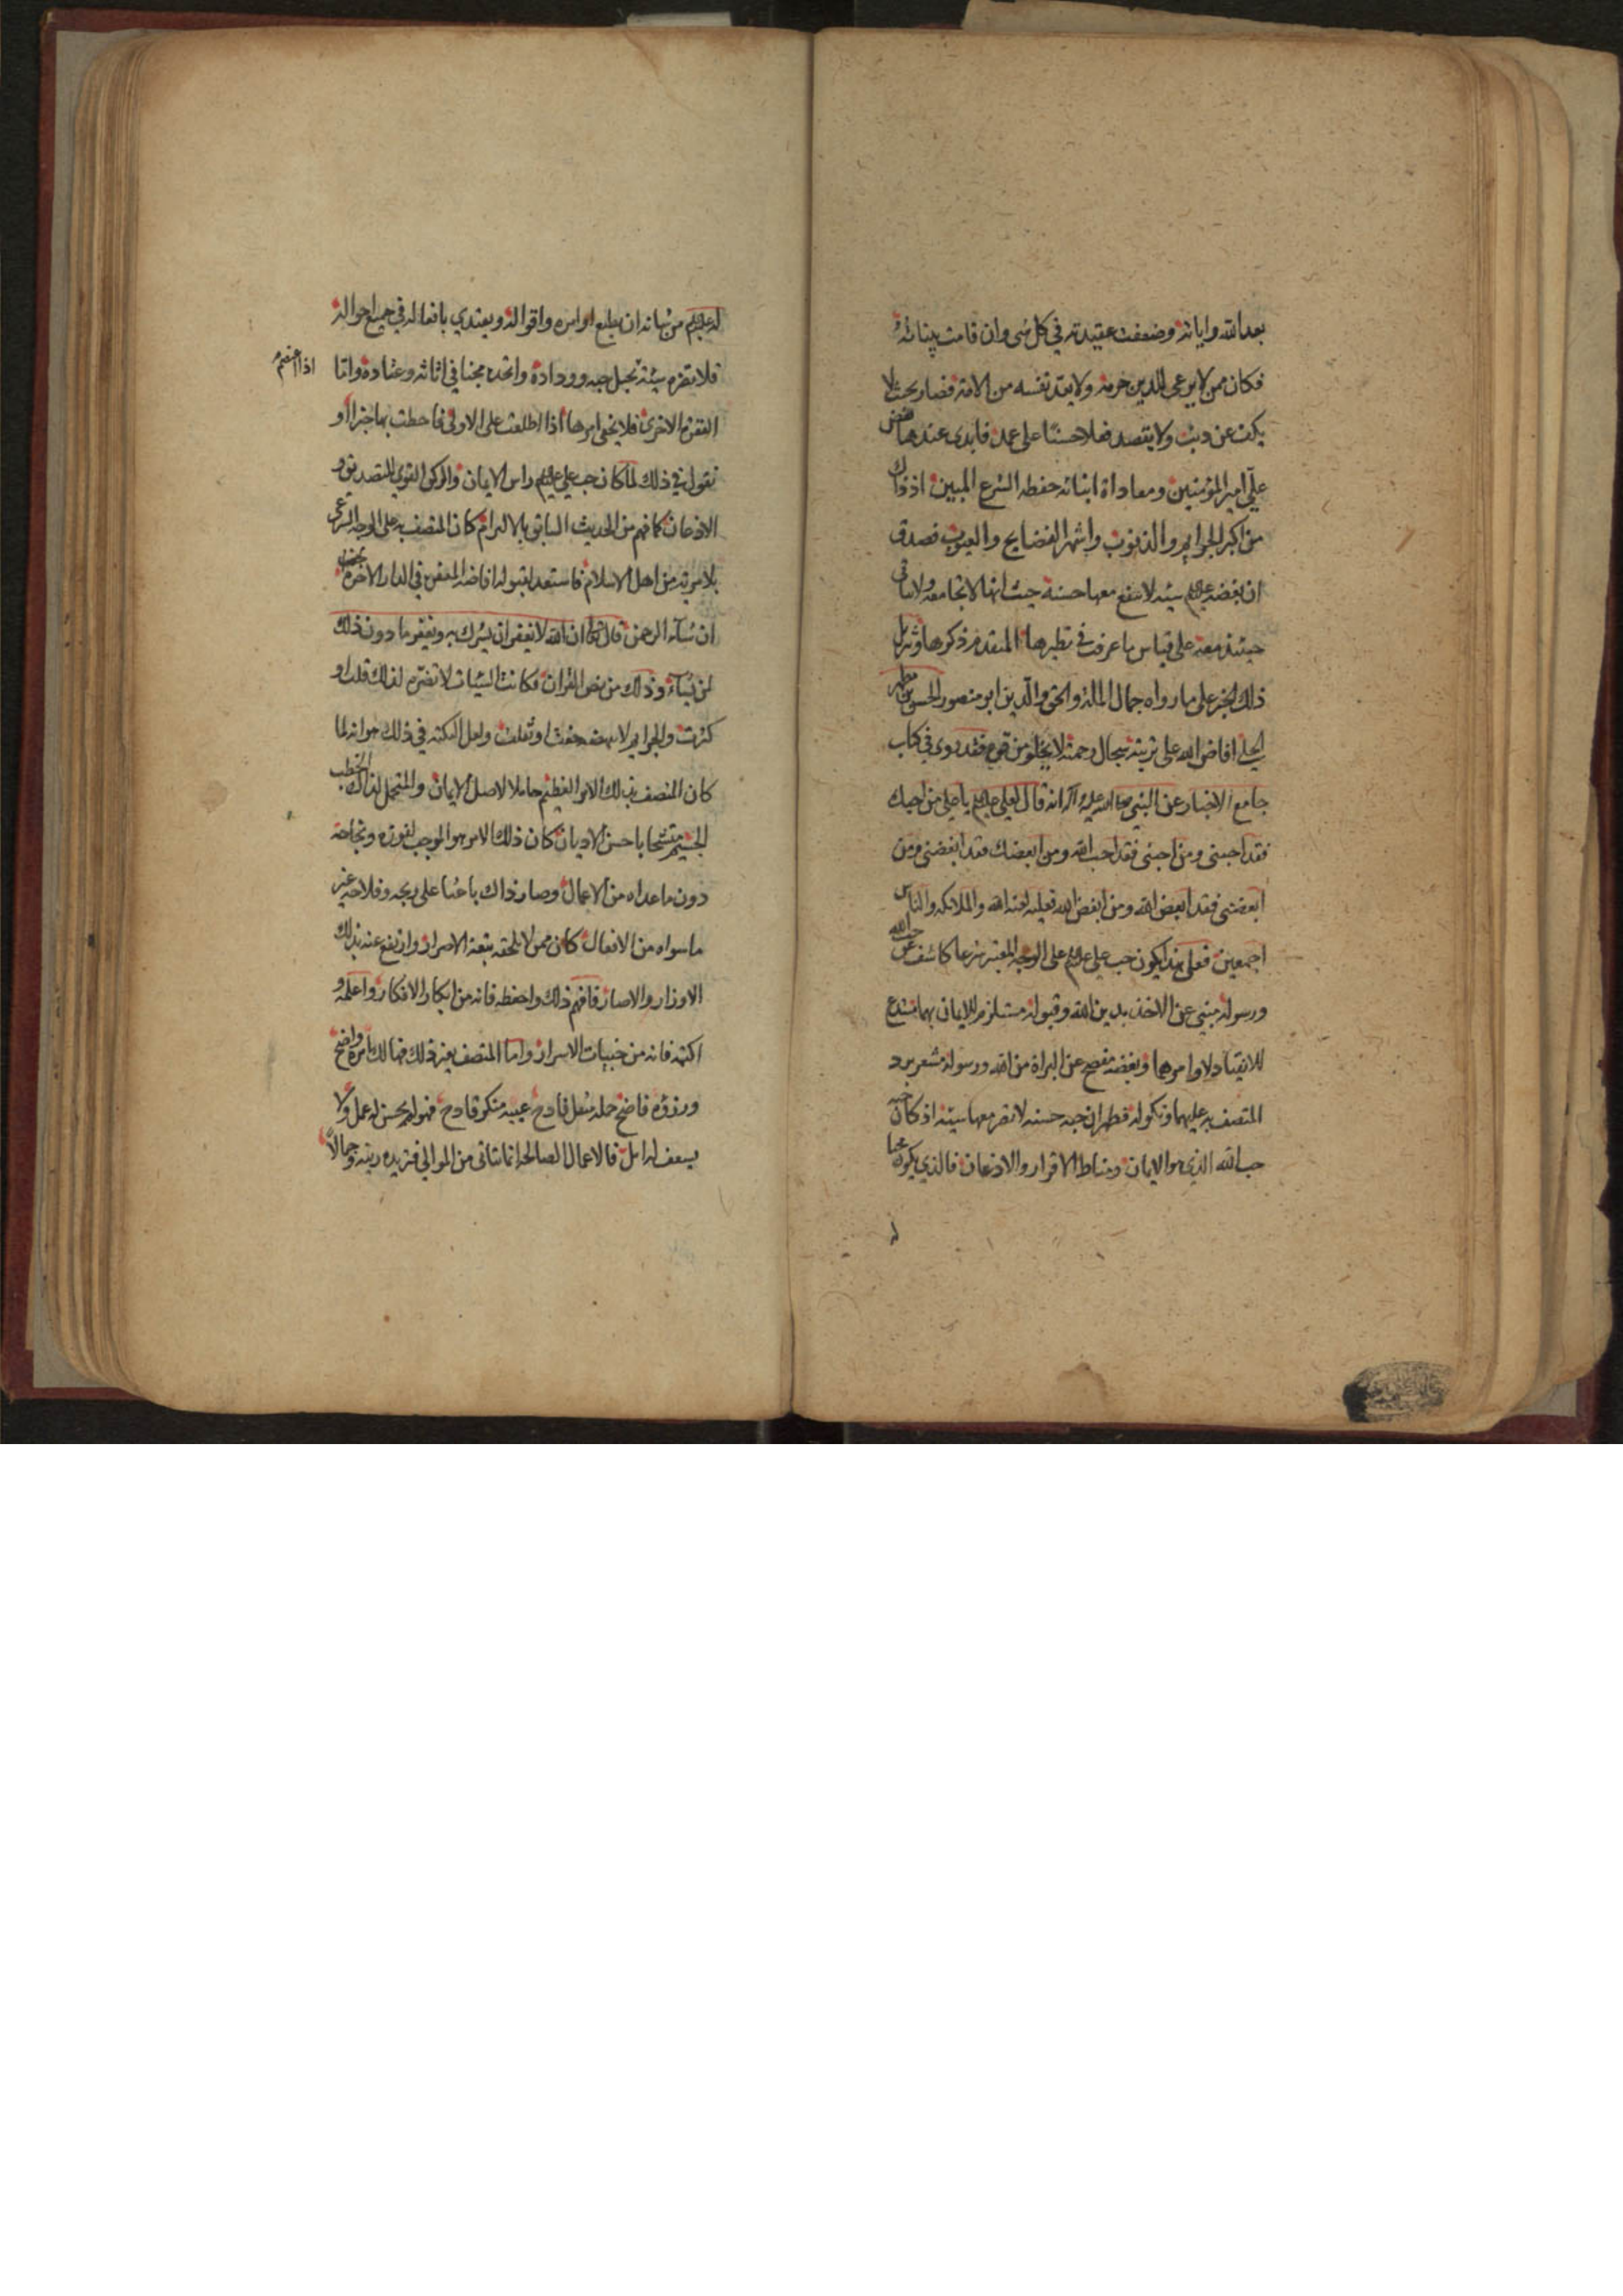 بعد الله واياته وضعفت عقيدته في كل شى وان قامت بيناته
فكان ممن لا يرعى للدين حرمة ولا يعد نفسه من الامة فصار بحيث لا
يكف عن ولا يقصد فعلا حسنا على عمد فابدى عندها بغض
علي امير المؤمنين ومعاداة ابنائه حفظه الشرع المبين اذ ذاك
من اكبر الجرايم والذنوب واشهر الفضايح والعيوب فصدق
ان بغضه عليلم سيئة لا ينفع معها حسنة حيث انها لا تجامعه ولا
حينئذ معه على قياس ما عرفت في نظيرها المتقدم ذكرها وتنزيل
ذلك الخبر على ما رواه جمال الملة والحق والدين ابو منصور الحسن بن مطهر
الحلي افاض الله على تربته سجال رحمته لا يخلو من قوة فقد روى في كتاب
جامع الاخبار عن النبي صلى الله عليه وآله انه قال لعلي عليلم يا علي من احبك
فقد احبنى ومن احبنى فقد احب الله ومن ابغضك فقد ابغضنى ومن
ابغضنى فقد ابغض الله ومن ابغض الله فعليه لعنة الله والملائكه والناس
اجمعين فعلى هذا يكون حب علي عليلم على الوجه المعتبر شرعا كاشف عن حب الله
ورسوله مبنى عن الاخذ بدين الله وقبوله مستلزم للايمان بهما
للانقياد لاوامرهما وبغضه مفصح عن البراة من الله ورسوله مشعر برد
المتصف به عليهما ونكوله فظهر ان حبه حسنه لا تضر معها سيئة اذ كان حبه
حب الله الذي هو الايمان ومناط الاقرار والاذعان فالذي يكون محبا
له
له عليلم من شانه ان يطيع اوامره واقواله ويقتدي بافعاله في جميع احواله
فلا تضره سيئة تحبل حبه ووداده واتخذه مجنا في اثاثه وعتاده واما
الفقره الاخرى فلا يخفى امرها اذا اطلعت على الاولى فاحطت بها خبرا او
نقول في ذلك لما كان حب علي عليلم راس الايمان والركن القوي للتصديق و
الاذعان كما فهم من الحديث السابق بالالتزام كان المتصف به على الوجه الشرعى
بلا مرية من اهل الاسلام فاستعد لقبوله افاضة المغفره في الدار الاخرة
ان شآء الرحمن قال تعالى ان الله لا يغفر ان يشرك به ويغفر ما دون ذلك
لمن يشآء وذلك من نص القران فكانت السيئات لا تضره لذلك قلت او
كثرت والجرايم لا خفت او ثقلت ولعل النكته في ذلك هو انه لما
كان المتصف بذلك الامر العظيم حاملا لاصل الايمان والمتحمل لذلك الخطب
الجسيم متشحا باحسن الاديان كان ذلك الامر هو الموجب لفوزه ونجاحه
دون ما عداه من الاعمال وصار ذاك باعثا على ربحه وفلاحه غير
ما سواه من الافعال كان ممن لا تلحقه تبعة الاصرار وارتفع عنه بذلك
الاوزار والاصار فافهم ذلك واحفظه فانه من ابكار الافكار واعلمه و
اكتمه فانه من خبيات الاسرار واما المتصف بغير ذلك فهالك بامره واضح
ووزره فاضح حمله مثقل فادح عيبه منكر قادح فهو لم يحسن له عمل ولا
يسعف له امل فالاعمال الصالحه انما تتاتى من الموالي فتزيده زينه وجمالا